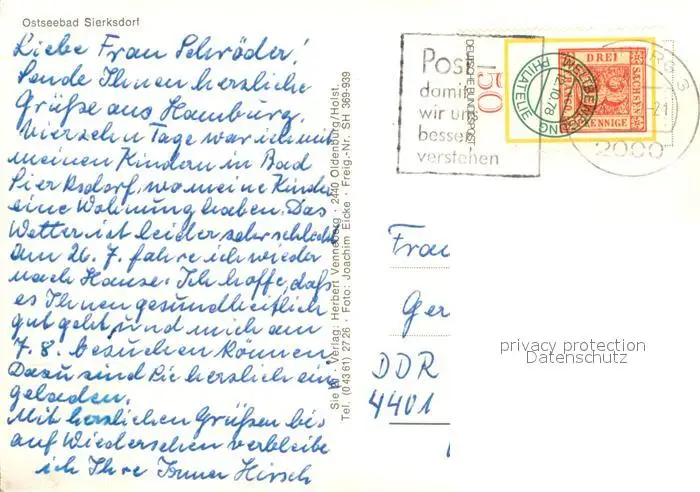 Ostseebad Sierksdorf
Liebe Frau Schröder!
Sende Ihnen herzliche
Grüße aus Hamburg.
Vierzehn Tage war ich mit
meinen Kindern in Bad
Sierksdorf, wo meine Kinder
eine Wohnung haben. Das
Wetter ist leider sehr schlecht
Am 26. 7. fahre ich wieder
nach Hause. Ich hoffe, daß
es Ihnen gesundheitlich
gut geht, und mich am
7. 8. besuchen können.
Dazu sind Sie herzlich ein
geladen.
Mit herzlichen Grüßen bis
auf Wiedersehen verbleibe
ich Ihre Irma Hirsch
Verlag: Herbert Venneberg · 2440 Oldenburg/Holst.
Tel. (0 43 61) 27 26 · Foto: Joachim Eicke · Freig.-Nr. SH 369-939
Post
damit
wir uns
besser
verstehen
DEUTSCHE BUNDESPOST
150
PHILATELIE
WELTBEWEGUNG
DREI
SACHSEN
PFENNIGE
2000
Frau
Ger
DDR
4401
privacy protection
Datenschutz